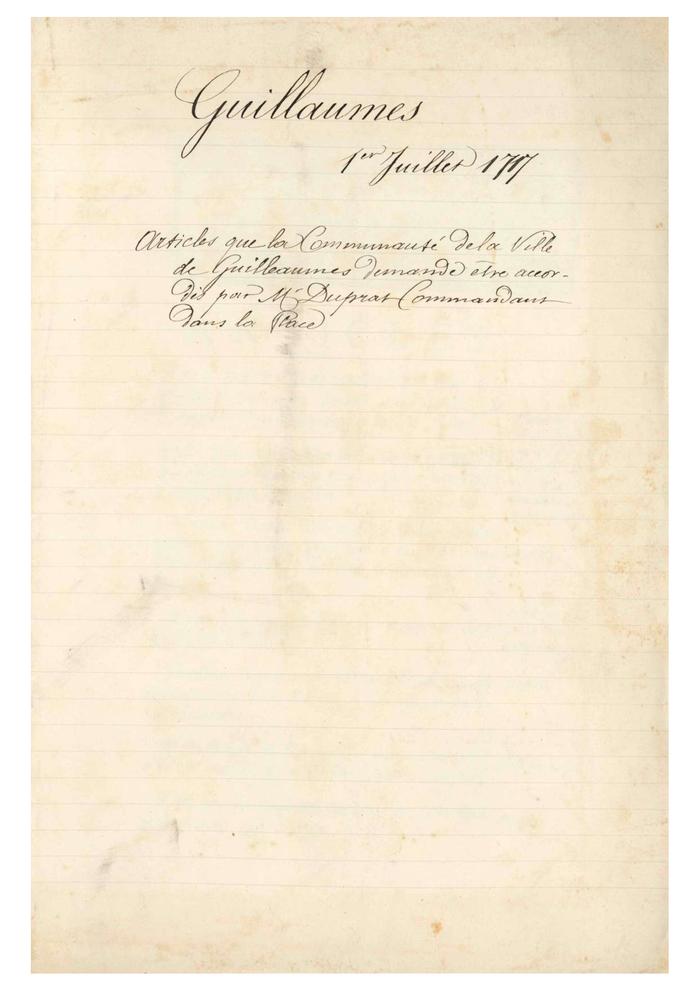 Guillaumes
1er Juillet 1717
Articles que la Communauté de la Ville
de Guilleaumes demande être accor-
dés par Mr Duprat Commandant
dans la Place